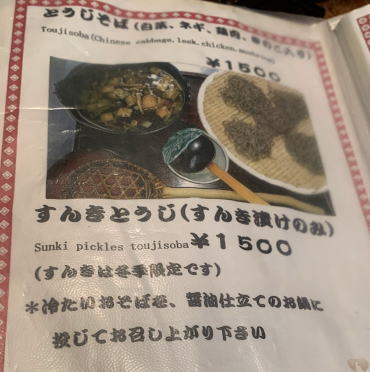 とうじそば(白菜、ネギ、鶏肉、きのこ入り)
Toujisoba(Chinese cabbage,leek,chicken,mushroom)
￥1500
すんきとうじ(すんき漬けのみ)
Sunki pickles toujisoba￥1500
(すんきは冬季限定です)
*冷たいおそばを、醤油仕立てのお鍋に
投じてお召し上がり下さい